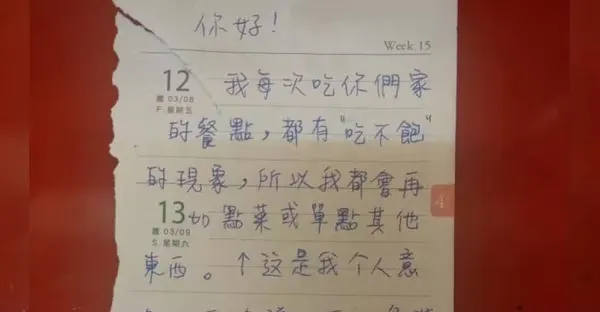 你好！
Week 15
12 我每次吃你們家
農 03/08
F. 星期五
的餐點，都有"吃不飽"
的現象，所以我都會再
13 加點菜或單點其他
農 03/09
S. 星期六
4
東西。↑這是我个人意